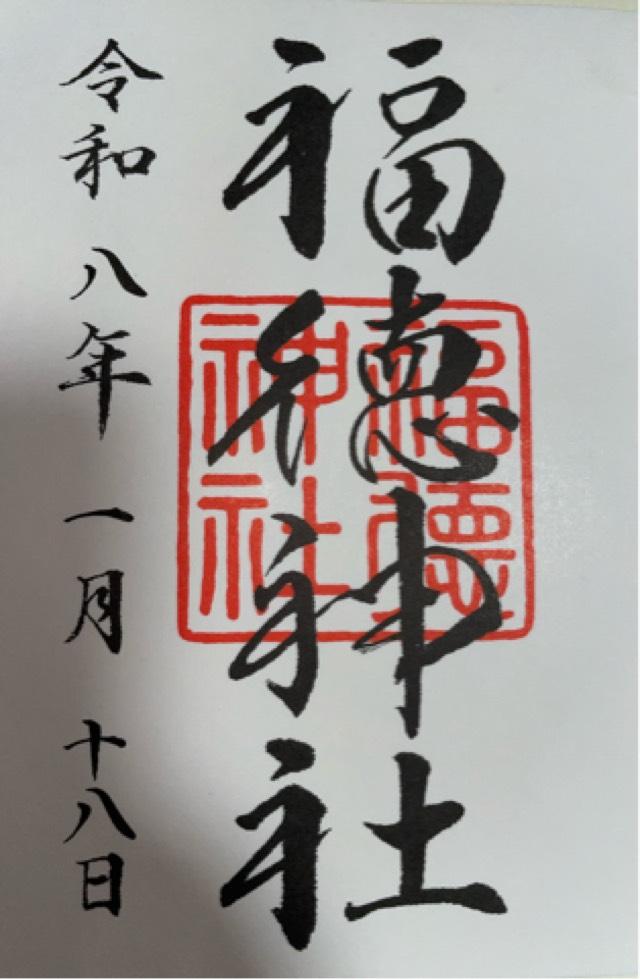 福徳神社
福徳神社
令和八年一月十八日